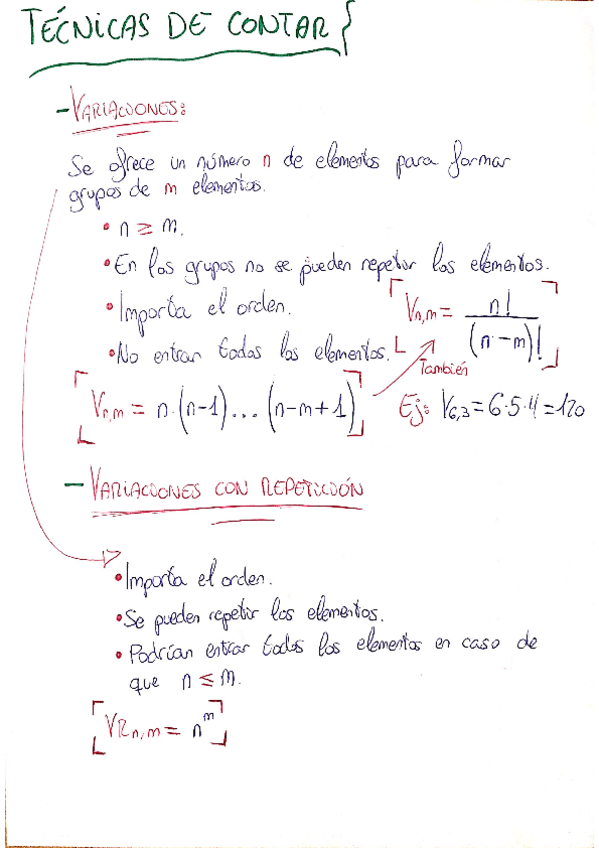 TÉCNICAS DE CONTAR {
- VARIACIONES:
Se ofrece un número n de elementos para formar
grupos de m elementos.
• n ≥ m.
• En los grupos no se pueden repetir los elementos.
• Importa el orden.
• No entran todos los elementos.
Vn,m = n! / (n-m)!
También
Vn,m = n·(n-1)...(n-m+1)
Ej: V6,3 = 6·5·4 = 120
- VARIACIONES CON REPETICIÓN
• Importa el orden.
• Se pueden repetir los elementos.
• Podrían entrar todos los elementos en caso de
que n ≤ m.
VRn,m = n^m